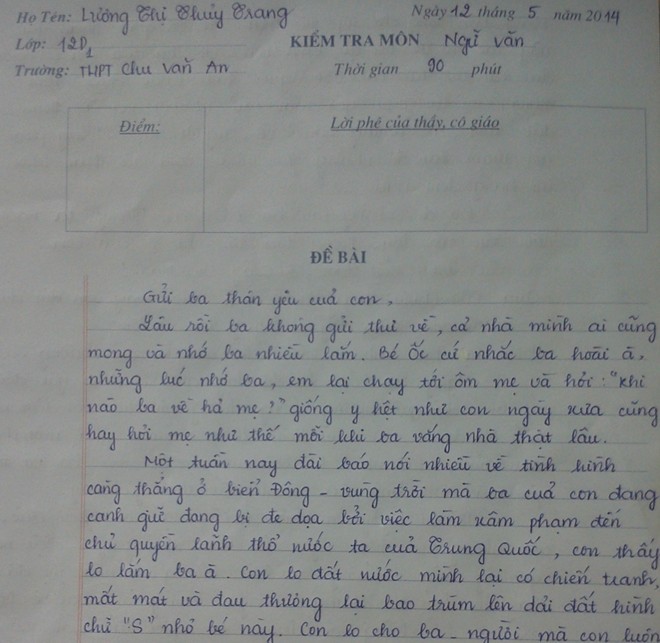 Họ Tên: Lương Thị Thủy Trang Ngày 12 tháng 5 năm 2014
Lớp: 12D1 KIỂM TRA MÔN Ngữ văn
Trường: THPT Chu Văn An Thời gian 90 phút
Điểm: Lời phê của thầy, cô giáo
ĐỀ BÀI
Gửi ba thân yêu của con,
Lâu rồi ba không gửi thư về, cả nhà mình ai cũng
mong và nhớ ba nhiều lắm. Bé Ốc cứ nhắc ba hoài à,
những lúc nhớ ba, em lại chạy tới ôm mẹ và hỏi: "Khi
nào ba về hả mẹ?" giống y hệt như con ngày xưa cũng
hay hỏi mẹ như thế mỗi khi ba vắng nhà thật lâu.
Một tuần nay đài báo nói nhiều về tình hình
căng thẳng ở biển Đông - vùng trời mà ba của con đang
canh giữ đang bị đe dọa bởi việc làm xâm phạm đến
chủ quyền lãnh thổ nước ta của Trung Quốc, con thấy
lo lắm ba à. Con lo đất nước mình lại có chiến tranh,
mất mát và đau thương lại bao trùm lên dải đất hình
chữ "S" nhỏ bé này. Con lo cho ba - người mà con luôn